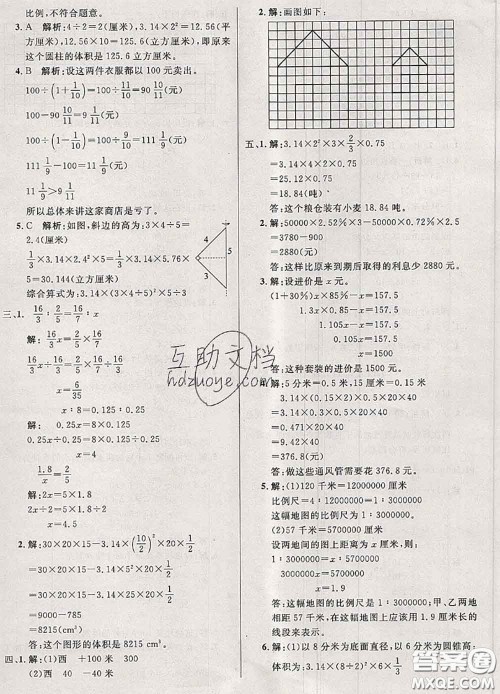 比例,不符合题意。
3. A 解析:4÷2=2(厘米),3.14×2²=12.56(平
方厘米),12.56×10=125.6(立方厘米),即原来
这个圆柱的体积是125.6立方厘米。
4. B 解析:设这两件衣服都以100元卖出。
100÷(1+1/10)=100÷11/10=90 10/11(元)
100÷(1-1/10)=100÷9/10=111 1/9(元)
111 1/9-100=11 1/9(元)
100-90 10/11=9 1/11(元)
11 1/9>9 1/11
所以总体来讲这家商店是亏了。
5. C 解析:如图,斜边的高为:3×4÷5=
2.4(厘米)
1/3×3.14×2.4²×5=1/3×3.14×5.76×
5=30.144(立方厘米)
综合算式为:3.14×(3×4÷5)²×5×1/3
4
5
3
三、1. 16/3∶2/5=16/7∶x
解: 16/3x=2/5×16/7
16/3x÷16/3=2/5×16/7÷16/3
x=6/35
x∶8=0.125∶0.25
解: 0.25x=8×0.125
0.25x÷0.25=8×0.125÷0.25
x=4
1.8/x=2/5
解: 2x=5×1.8
2x÷2=5×1.8÷2
x=4.5
2. 解:30×20×15-3.14×(10/2)²×20×1/2
=30×20×15-3.14×25×20×1/2
=9000-785
=8215(cm³)
答:这个图形的体积是8215 cm³。
四、1. 解:(1)西 +100米 300
(2)西 40 -40米
2. 解:画图如下:
五、1. 解:3.14×2²×3×2/3×0.75
=3.14×4×2×0.75
=25.12×0.75
=18.84(吨)
答:这个粮仓装有小麦18.84吨。
2. 解:50000×2.52%×3-50000×0.3%×6
=3780-900
=2880(元)
答:这样比原来到期后取得的利息少2880元。
3. 解:设进价是x元。
(1+30%)x×85%-x=157.5
1.105x-x=157.5
0.105x=157.5
x=1500
答:这种套装的进价是1500元。
解:5分米=0.5米,15厘米=0.15米
3.14×0.15×2×0.5×20×40
=3.14×0.3×0.5×20×40
=0.471×20×40
=9.42×40
=376.8(元)
答:做这些通风管需要花376.8元。
5. 解:(1)120千米=12000000厘米
比例尺=4∶12000000=1∶3000000
答:这幅地图的比例尺是1∶3000000。
(2)57千米=5700000厘米
设两地间的图上距离为x厘米,则:
1∶3000000=x∶5700000
3000000x=5700000
x=1.9
答:这幅地图的比例尺是1∶3000000,甲、乙两地
相距57千米,在这幅地图上应该用1.9厘米长的
线段来表示。
6. 解:(1)以8厘米为底面直径,以6厘米为圆锥高:
体积为:3.14×(8÷2)²×6×1/3
互助文档
hdzuoye.com
答案圈
MXQE.COM